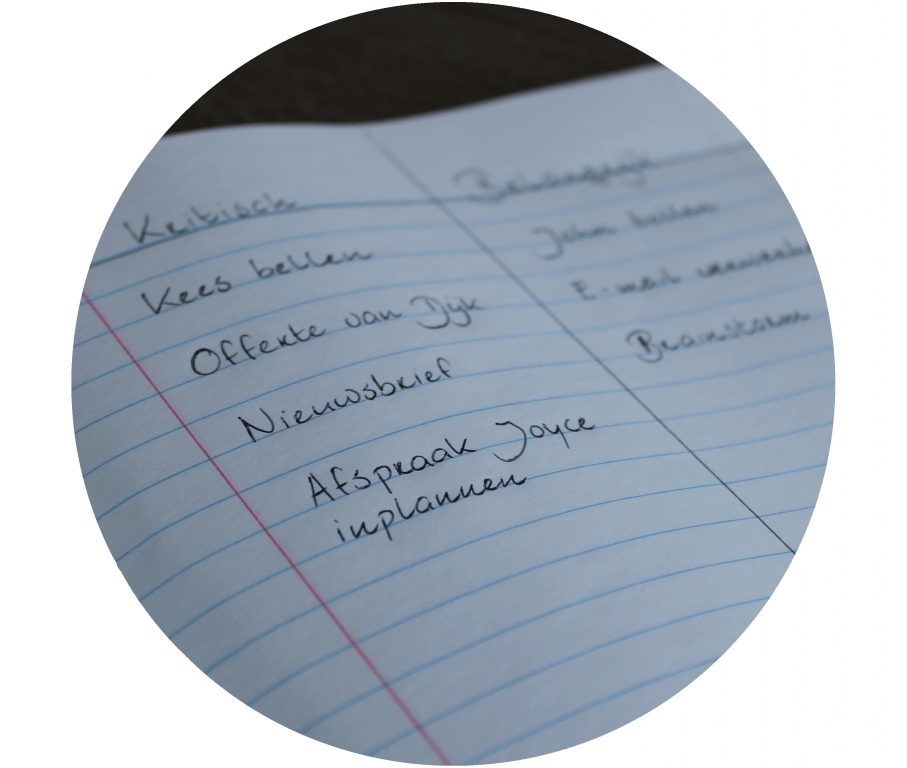 Kritisch
Kees bellen
Offerte van Dijk
Nieuwsbrief
Afspraak Joyce
inplannen
Belangrijk
John bellen
E-mail
Brainstorm